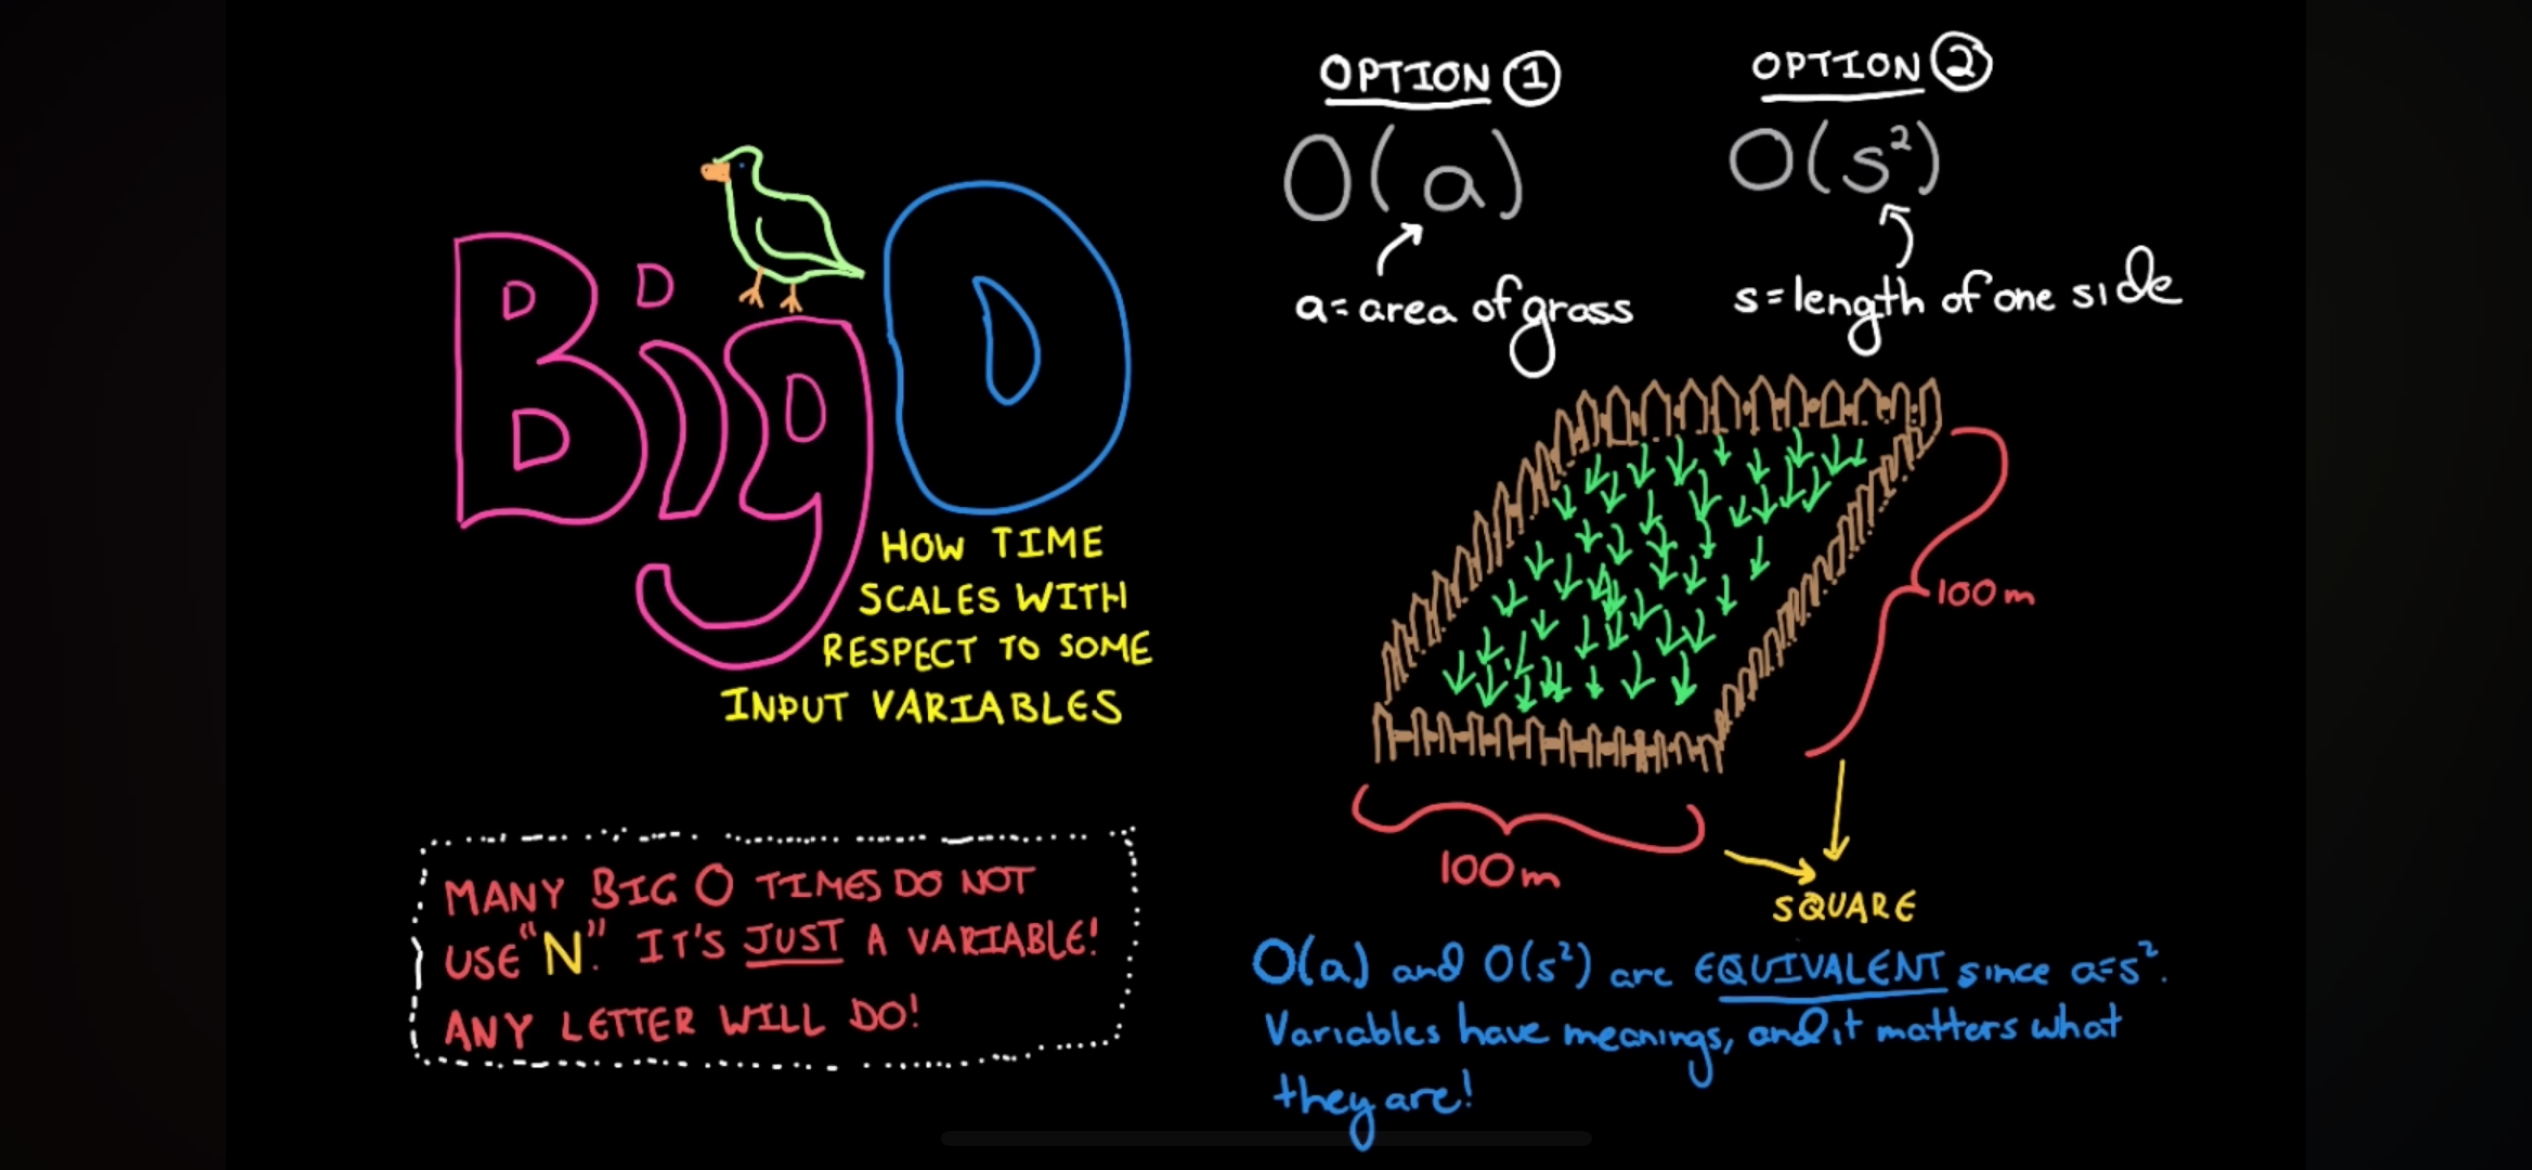 Big O
HOW TIME
SCALES WITH
RESPECT TO SOME
INPUT VARIABLES
MANY BIG O TIMES DO NOT
USE "N." IT'S JUST A VARIABLE!
ANY LETTER WILL DO!
OPTION 1
O(a)
a = area of grass
OPTION 2
O(s²)
s = length of one side
100m
100m
SQUARE
O(a) and O(s²) are EQUIVALENT since a=s².
Variables have meanings, and it matters what
they are!